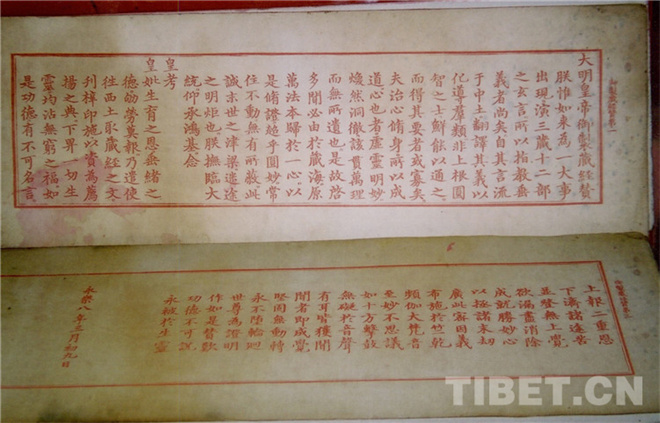 大明皇帝御製藏經贊
朕惟如來為一大事
出現演三藏十二部
之玄言所以指
義者尚矣自其言流
于中土翻譯其義以
化導羣類非上根圓
智之士鮮能以通之
而得其要者或寡矣
夫治心脩身所以成
道心也者虛靈明妙
煥然洞徹該貫萬理
而無所遺也是故啓
多聞必由於藏海原
萬法本歸於一心以
是脩證超乎圓妙常
住不動無有所
誠末世之津梁迷途
之明炬也朕撫臨大
統仰承鴻基念
皇考
皇妣生育之恩垂緒之
德劬勞莫報乃遣使
往西土取藏經之文
刊梓印施以資為薦
揚之典下畀一切生
靈均沾無窮之福如
是功德有不可名言
上報二重恩
下濟諸途苦
普發無上覺
欲溺盡消除
成就勝妙心
以極諸末劫
廣此因義
布施於竺乾
頻伽大梵音
至妙不思議
如十方擊鼓
無礙於音聲
有耳皆獲聞
聞者即成覺
堅固無動轉
永不墮輪迴
世尊為證明
作如是贊歎
功德不可說
永拔於生靈
永樂八年三月初九日
TIBET.CN